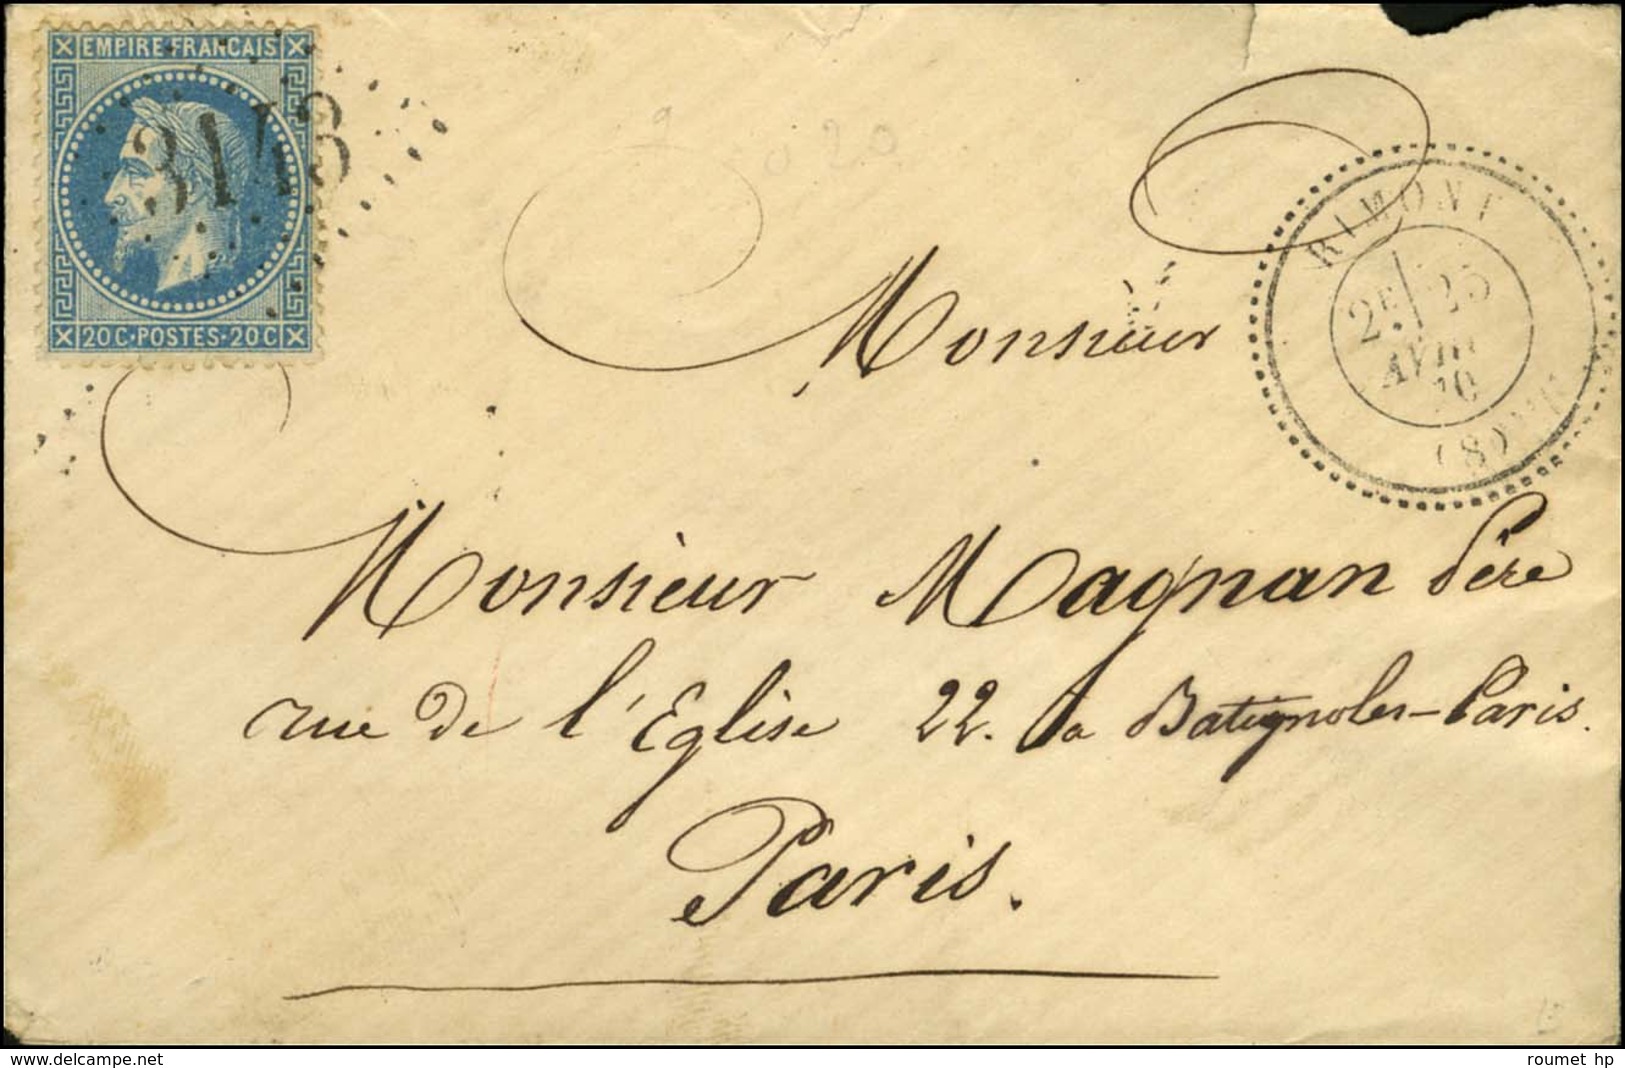 EMPIRE FRANÇAIS
3143
20C·POSTES·20C
9
020
RIMONT
2E 25
AVRIL
70
(8)
Monsieur
Monsieur Magnan Père
rue de l'Eglise 22. à Batignoles-Paris.
Paris.
www.delcampe.net
roumet hp